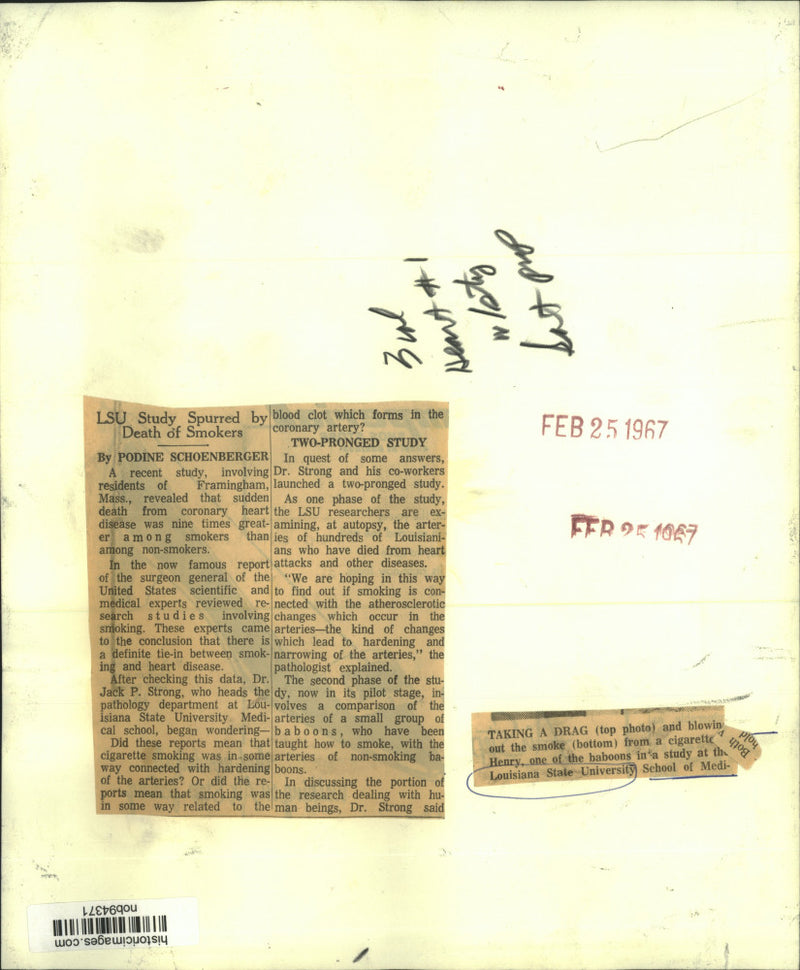 3 col
Heart #1
w/sty
FEB 25 1967
FEB 25 1967
LSU Study Spurred by
Death of Smokers
By PODINE SCHOENBERGER
A recent study, involving
residents of Framingham,
Mass., revealed that sudden
death from coronary heart
disease was nine times great-
er among smokers than
among non-smokers.
In the now famous report
of the surgeon general of the
United States scientific and
medical experts reviewed re-
search studies involving
smoking. These experts came
to the conclusion that there is
a definite tie-in between smok-
ing and heart disease.
After checking this data, Dr.
Jack P. Strong, who heads the
pathology department at Lou-
isiana State University Medi-
cal school, began wondering—
Did these reports mean that
cigarette smoking was in some
way connected with hardening
of the arteries? Or did the re-
ports mean that smoking was
in some way related to the
blood clot which forms in the
coronary artery?
TWO-PRONGED STUDY
In quest of some answers,
Dr. Strong and his co-workers
launched a two-pronged study.
As one phase of the study,
the LSU researchers are ex-
amining, at autopsy, the arter-
ies of hundreds of Louisiani-
ans who have died from heart
attacks and other diseases.
"We are hoping in this way
to find out if smoking is con-
nected with the atherosclerotic
changes which occur in the
arteries—the kind of changes
which lead to hardening and
narrowing of the arteries," the
pathologist explained.
The second phase of the stu-
dy, now in its pilot stage, in-
volves a comparison of the
arteries of a small group of
baboons, who have been
taught how to smoke, with the
arteries of non-smoking ba-
boons.
In discussing the portion of
the research dealing with hu-
man beings, Dr. Strong said
TAKING A DRAG (top photo) and blowin
out the smoke (bottom) from a cigarette
Henry, one of the baboons in a study at th
Louisiana State University School of Medi-
Both
hold
historicimages.com
nob94371